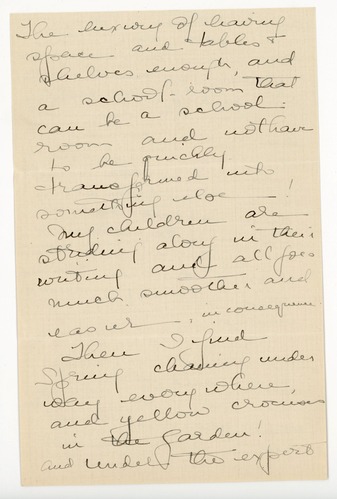 The luxury of having
space and tables &
shelves enough, and
a school-room that
can be a school-
room and not have
to be quickly
transformed into
something else!
My children are
striding along in their
writing and all goes
much smoother and
easier, in consequence.
Then I find
Spring cleaning under
way everywhere,
and yellow crocuses
in the garden!
and under the expert